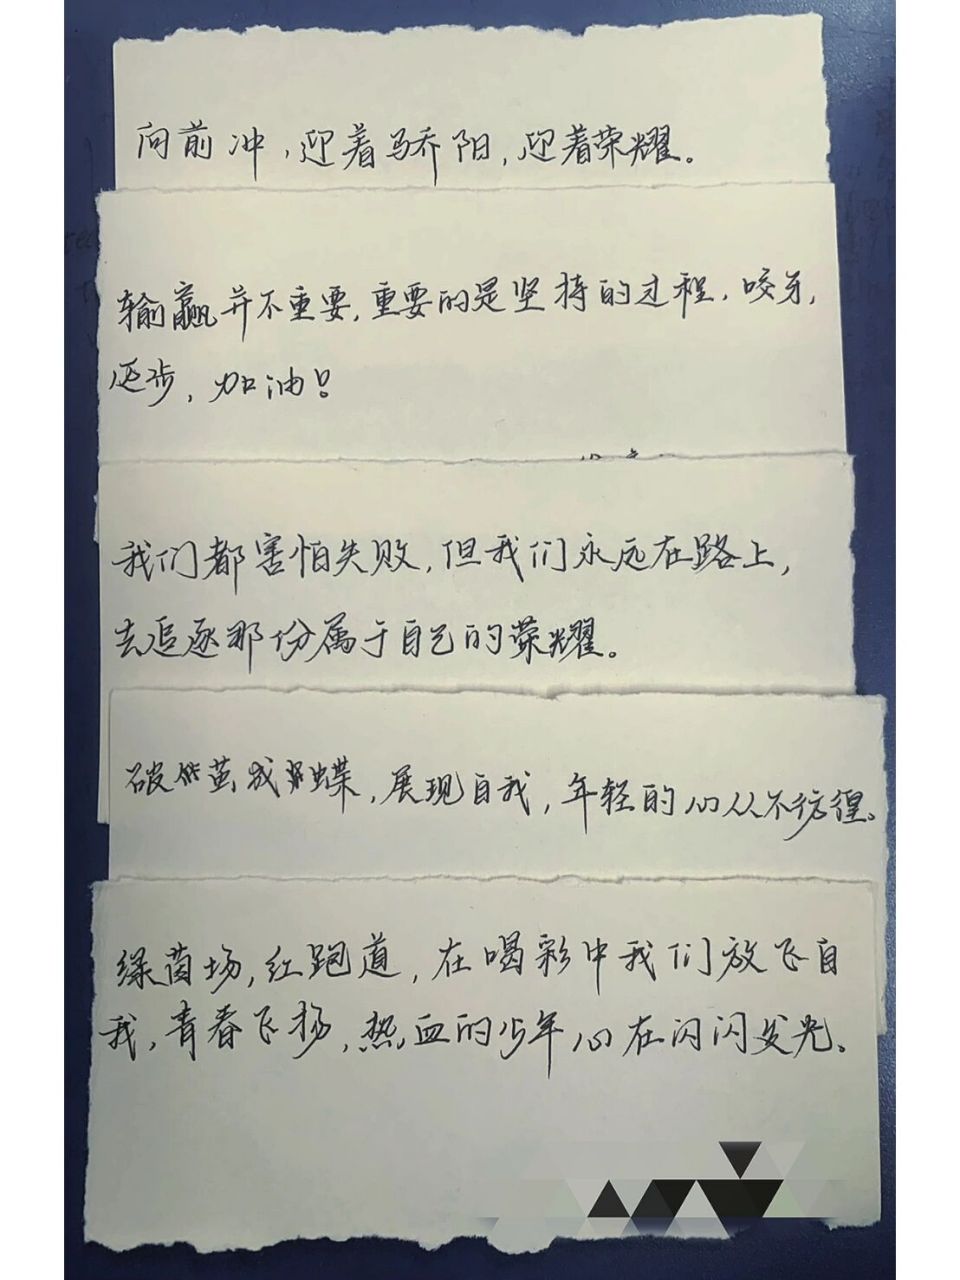 向前冲，迎着骄阳，迎着荣耀。
输赢并不重要，重要的是坚持的过程，咬牙，
迈步，加油！
我们都害怕失败，但我们永远在路上，
去追逐那份属于自己的荣耀。
破茧成蝶，展现自我，年轻的心从不彷徨。
绿茵场，红跑道，在喝彩中我们放飞自
我，青春飞扬，热血的少年心在闪闪发光。